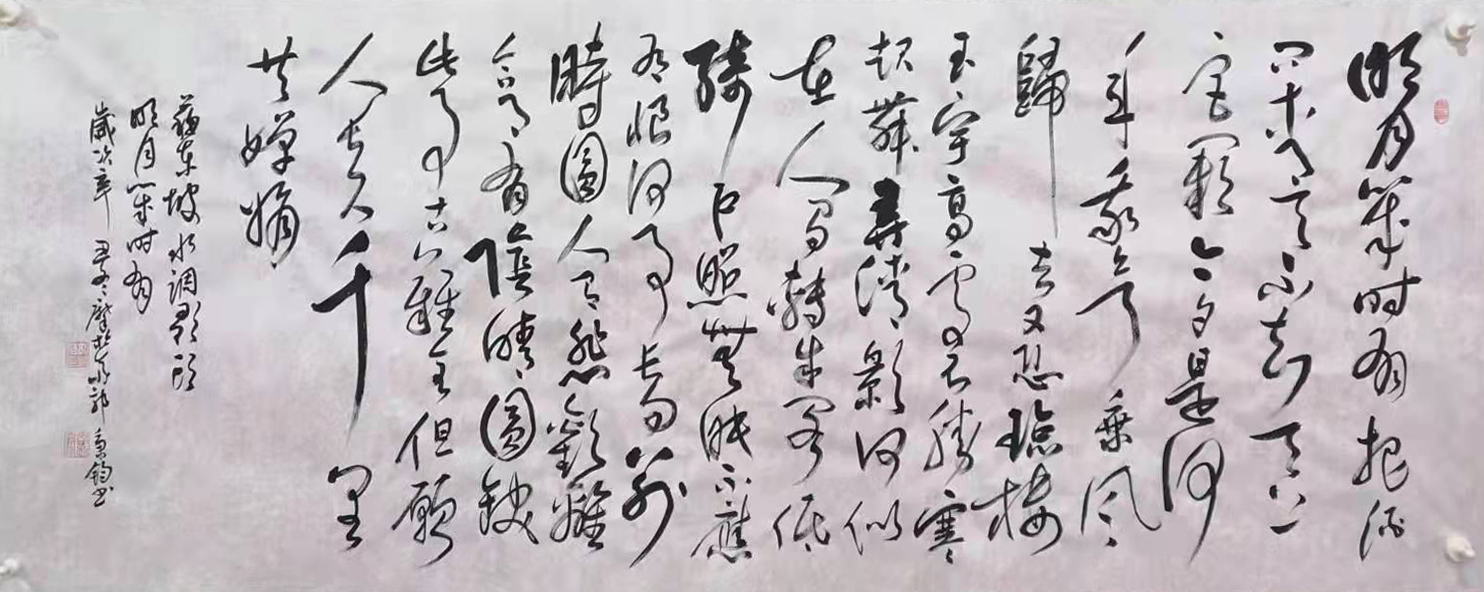 明月幾时有把酒
問青天不知天上
宮闕今夕是何
年我欲乘風
歸去又恐瓊樓
玉宇高處不勝寒
起舞弄清影何似
在人間轉朱閣低
綺戶照無眠不應
有恨何事長向別
時圓人有悲歡離
合月有陰晴圓缺
此事古難全但願
人長久千里
共嬋娟
蘇東坡水調歌頭
明月幾时有
歲次辛丑冬郭秉鈞书